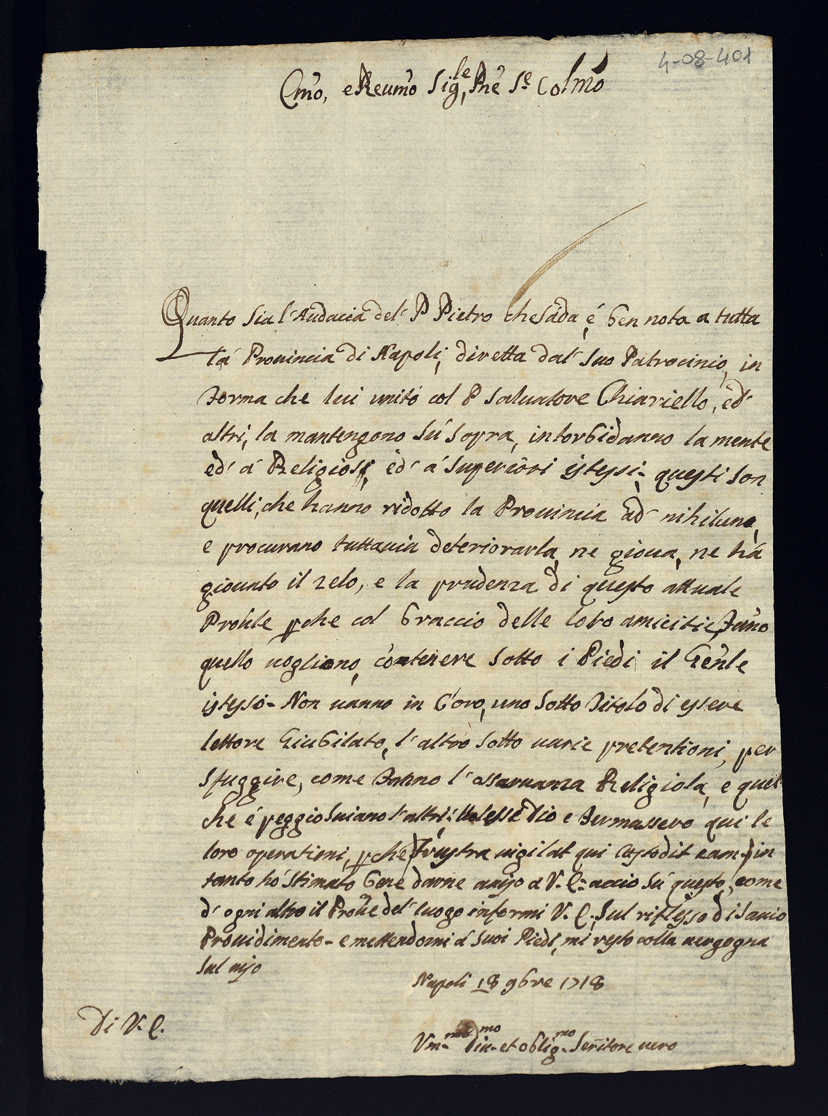 4-08-401
Emo, e Reumo Sig.le, Pne Se Colmo
Quanto sia l'Audacia del' P Pietro che sada è ben nota a tutta
la' Prouincia di Napoli, diretta dal' suo Patrocinio, in
forma che lui unito col P Saluatore Chiariello, ed'
altri, la mantengono sù sopra, intorbidanno la mente
ed' a' Religiosi, ed' a' Superiori istessi: questi son
quelli, che hanno ridotto la Prouincia ad' nihilum,
e procurano tuttauia deteriorarla, ne gioua, ne ha
giouato il zelo, e la prudenza di questo attuale
Prou.le pche col braccio delle loro amicitie fano
quello uogliono, contenere sotto i Piedi il Gen'le
istesso - Non uanno in Coro, uno sotto titolo di essere
lettore Giubilato, l'altro sotto uarie pretentioni, per
sfuggire, come fanno l'ossaruanza Religiosa, e quel
che é peggio suiano l'altri: Uolesse Dio e fermassero qui le
loro operationi, pche frustra uigilat qui custodit eam in
tanto hò stimato bene darne auiso a V. E. accio sù questo, come
d'ogni altro il Prou'le del' luogo informi V. E. sul riflesso di sauio
Prouidimento - e mettendomi a' Suoi Piedi, mi resto colla uergogna
sul uiso
Napoli 18 9bre 1718
Di V. E.
Um-mo Diu-mo et oblig-mo Seruitore uero